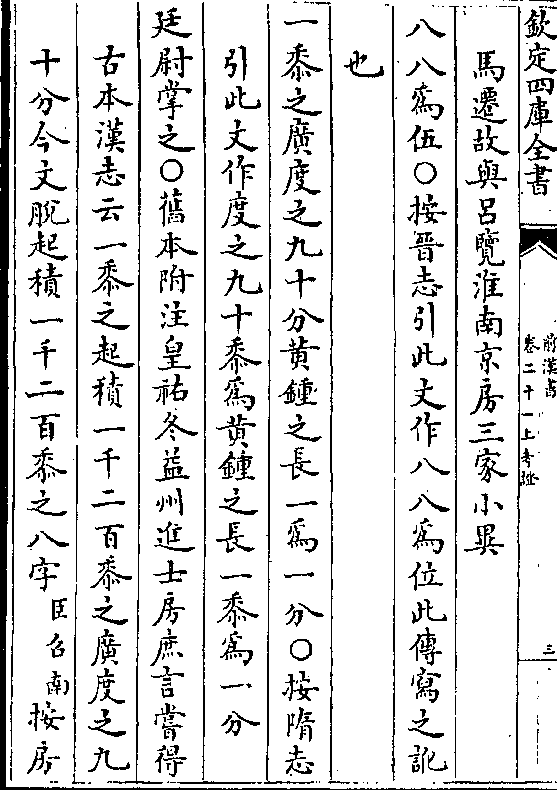 欽定四庫全書
前漢書
卷二十一上考證
三
馬遷故與呂覽淮南京房三家小異
八八爲伍○按晉志引此文作八八爲位此傳寫之訛
也
一黍之廣度之九十分黃鍾之長一爲一分○按隋志
引此文作度之九十黍爲黃鍾之長一黍爲一分
廷尉掌之○舊本附注皇祐冬益州進士房庶言嘗得
古本漢志云一黍之起積一千二百黍之廣度之九
十分今文脫起積一千二百黍之八字臣召南按房